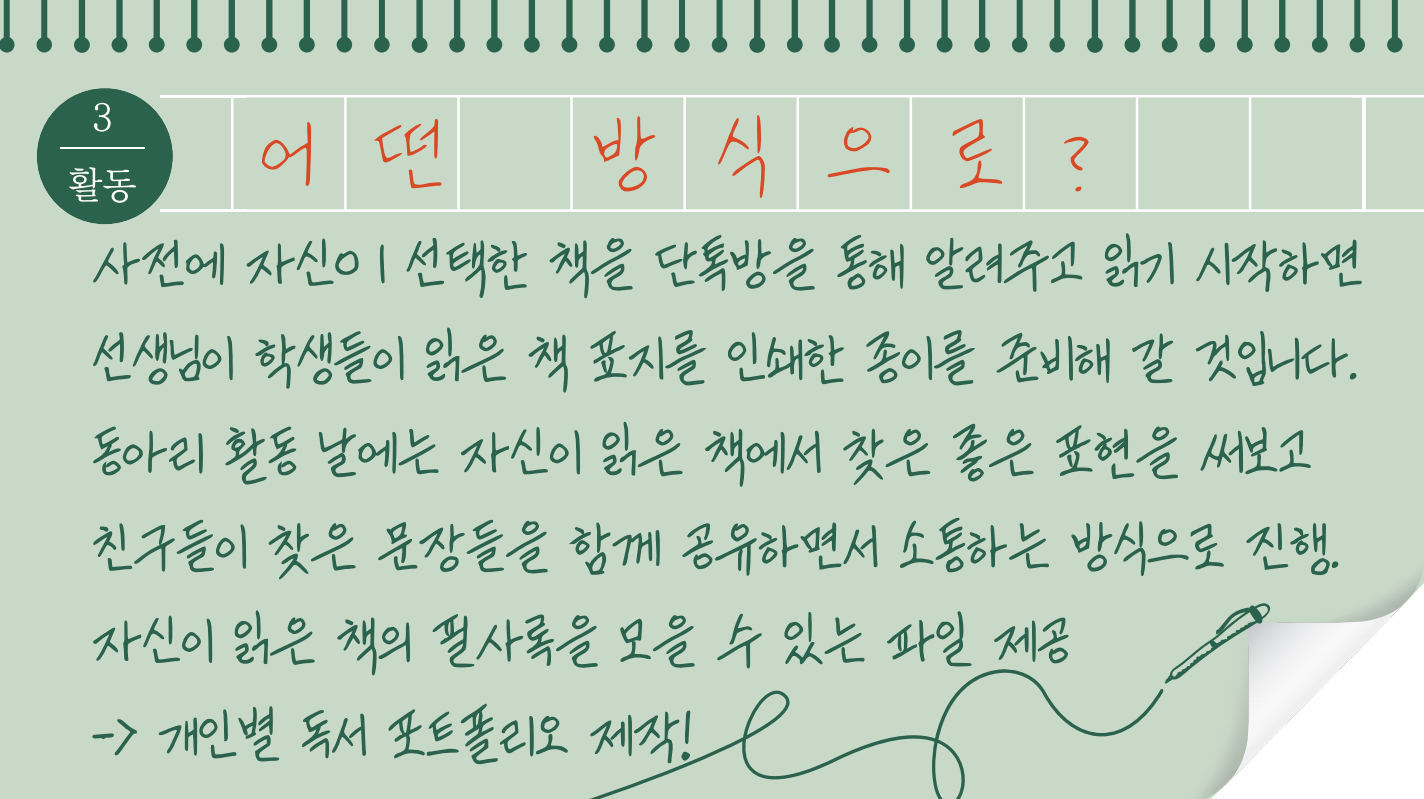 3
활동
어떤 방식으로?
사전에 자신이 선택한 책을 단톡방을 통해 알려주고 읽기 시작하면
선생님이 학생들이 읽은 책 표지를 인쇄한 종이를 준비해 갈 것입니다.
동아리 활동 날에는 자신이 읽은 책에서 찾은 좋은 표현을 써보고
친구들이 찾은 문장들을 함께 공유하면서 소통하는 방식으로 진행.
자신이 읽은 책의 필사록을 모을 수 있는 파일 제공
-> 개인별 독서 포트폴리오 제작!